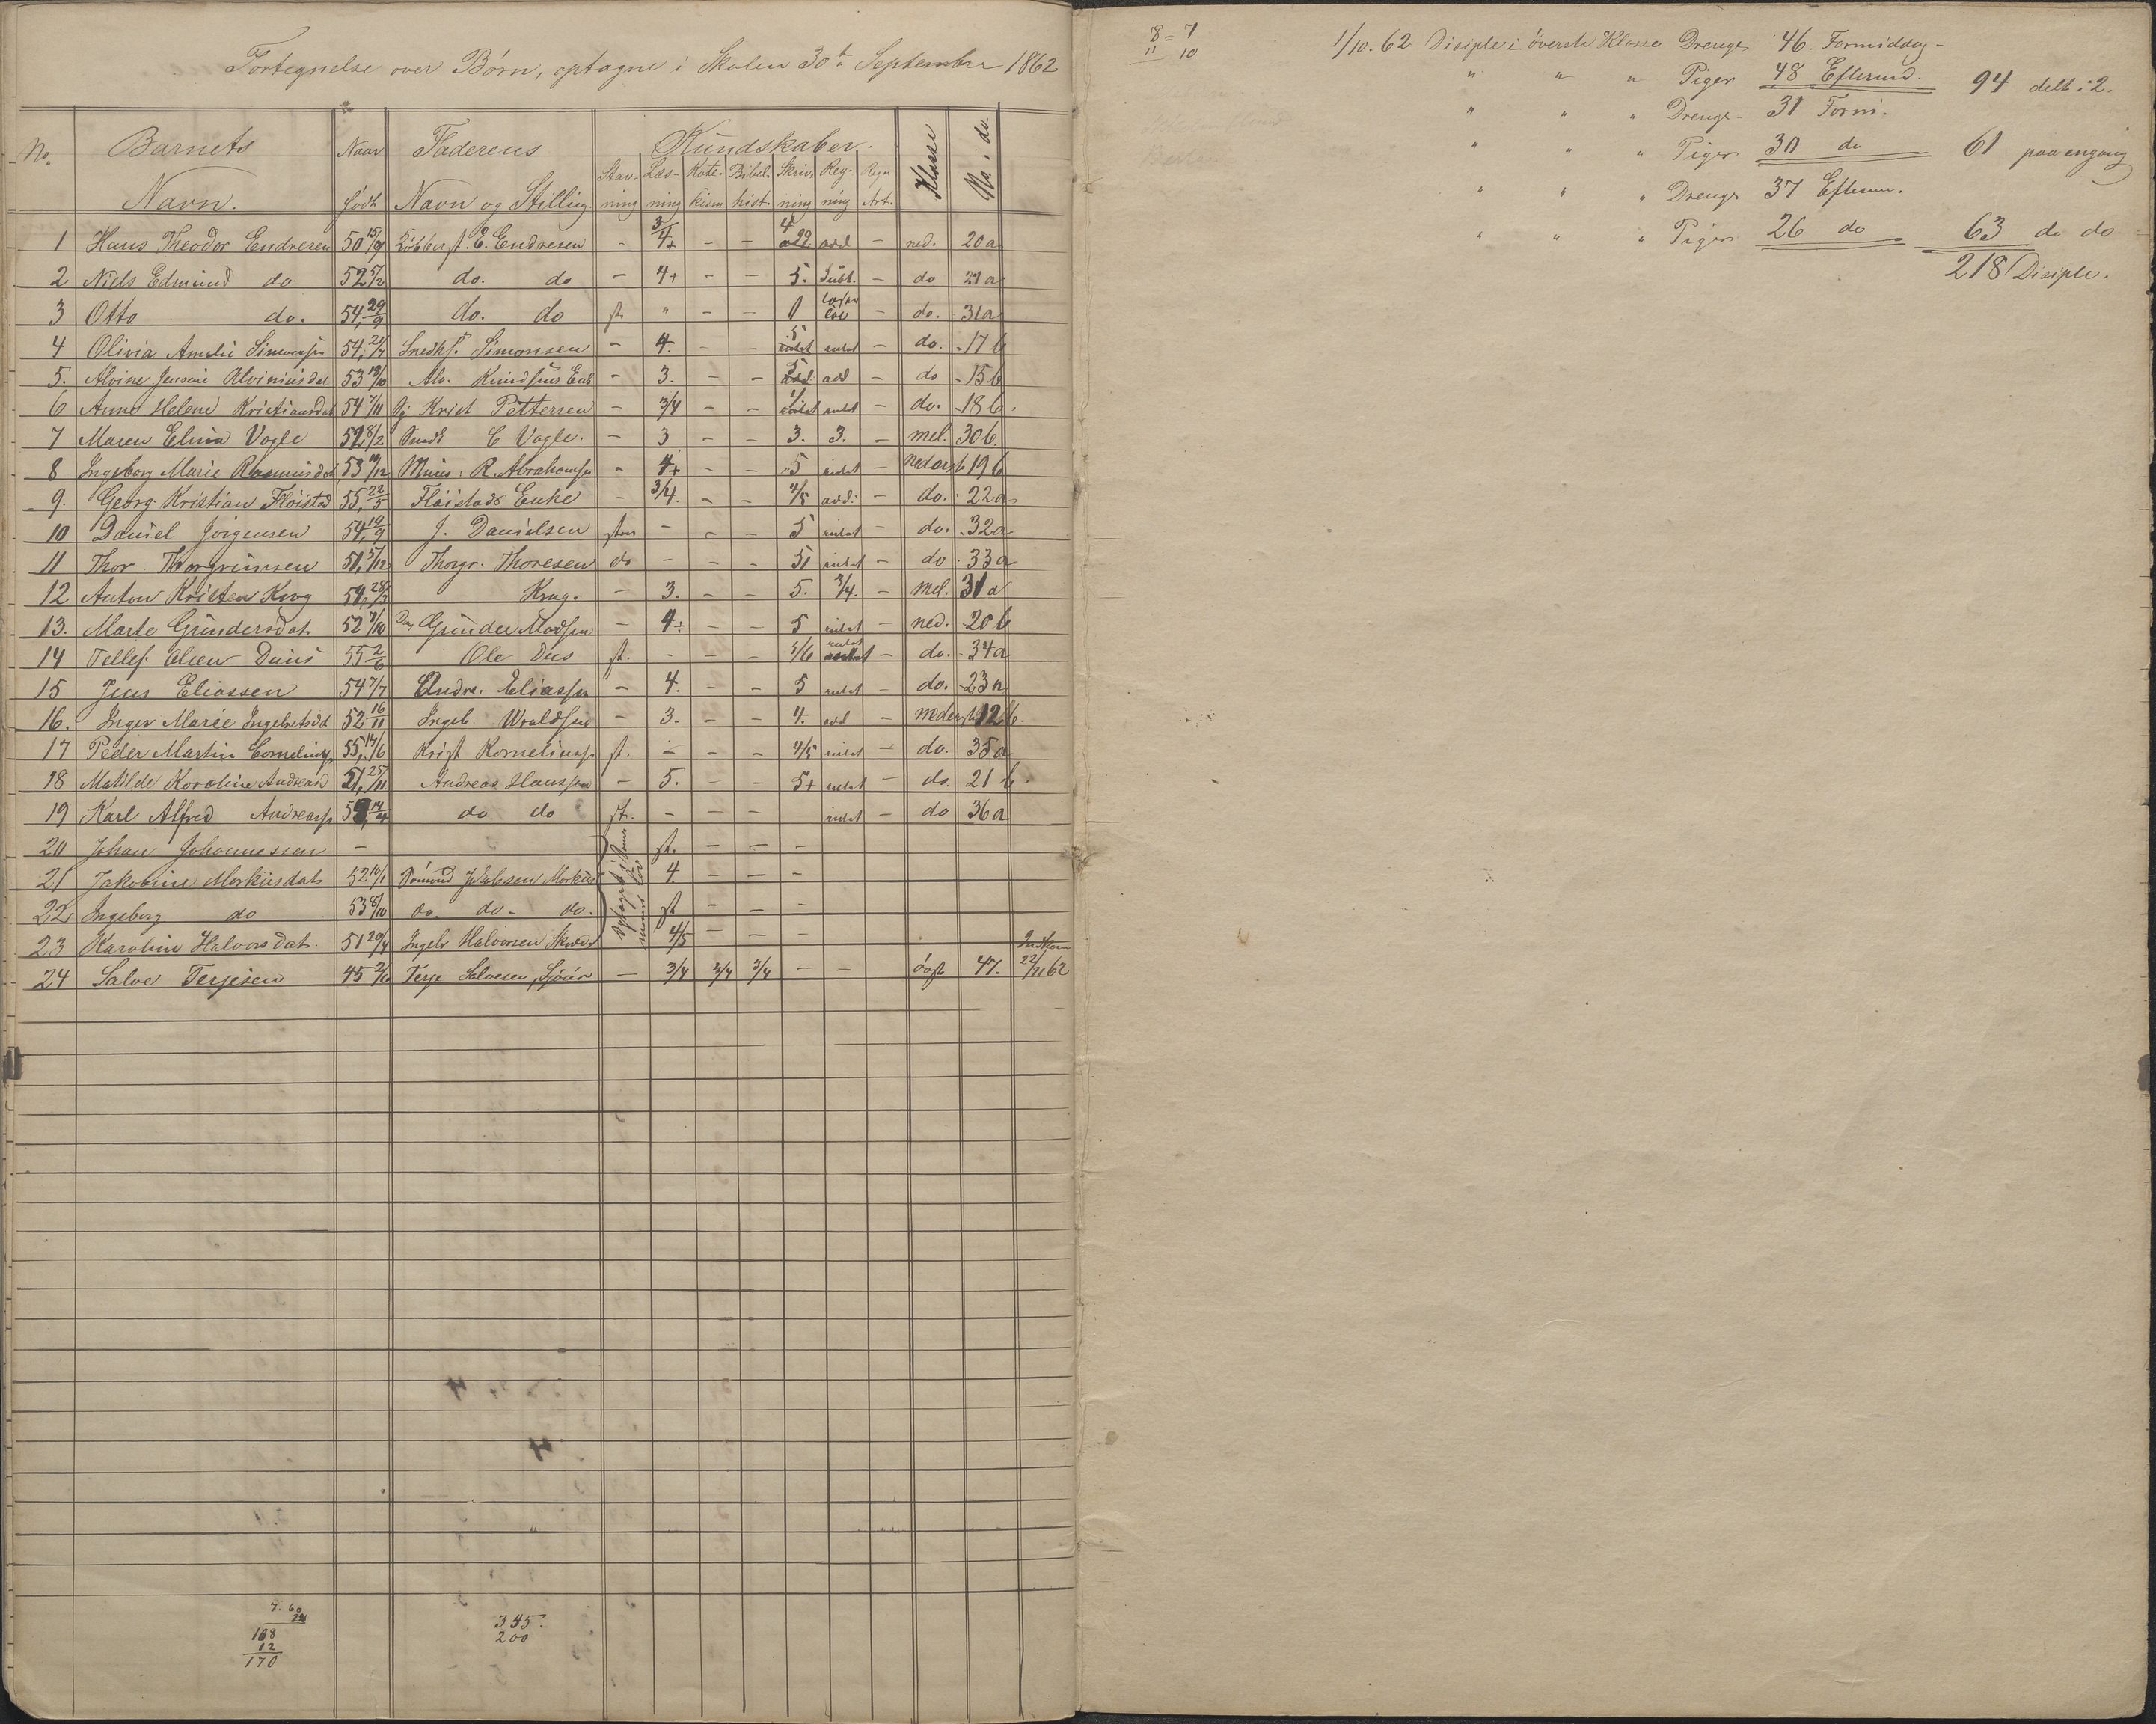 Fortegnelse over Børn, optagne i Skolen 30te September 1862
No. Barnets Navn. Naar født Faderens Navn og Stilling. Kundskaber. Klasse No. i do.
Stavning Læsning Katekism Bibelhist. Skrivning Regning Regn Art.
1 Hans Theodor Endresen 50 15/9 E. Endresen - 3/4+ - - 4 add - ned. 20a
2 Niels Edmund do 52 5/2 do. do - 4+ - - 5. Subt. - do 21a
3 Otto do. 54, 29/9 do. do st. " - - 0 - do. 31a
4 Olivia Amalie Simonsen 54, 21/7 Simonsen - 4. - - 5 intet - do. 17b
5. Alvine Jensine Alviniusdat 53 18/10 Alv. Knudsens Enk - 3. - - 5 add - do 15b
6 Anne Helene Kristiansdat 54 7/11 Krist Pettersen - 3/4 - - 4 intet - do. 18b.
7 Maren Elina Vagle 52 8/2 Snedk C Vagle. - 3 - - 3. 3. - mel. 30b.
8 Ingeborg Marie Rasmusdat 53 19/12 R. Abrahamsen - 4+ - - 5 intet - nederst 19b
9. Georg Kristian Fløistad 55, 22/5 Fløistads Enke - 3/4. - - 4/5 add. - do. 22a
10 Daniel Jörgensen 54, 14/9 J. Danielsen stav - - - 5 intet - do. 32a
11 Thor Thorgrimsen 51, 5/12 Thorgr. Thoresen do - - - 5 intet - do 33a
12 Anton Kristen Krog 51, 28/3 Krog. - 3. - - 5. 3/4. - mel. 31a
13. Marte Gundersdat 52 7/10 Gunder Madsen - 4÷ - - 5 intet - ned. 20b
14 Tellef Olsen Duus 55 2/6 Ole Dus st. - - - 5/6 intet - do. 34a
15 Jens Eliassen 54 7/7 Andr. Eliassen - 4. - - 5 intet - do. 23a
16. Inger Marie Ingebretsdt 52 16/11 Ingeb - 3. - - 4. add - nederst 12b.
17 Peder Martin Corneliuss. 55, 14/6 Krist Korneliuss. st. - - - 4/5 intet - do. 35a
18 Matilde Karoline Andreasd 51, 25/11 Andreas Hanssen - 5. - - 5+ intet - do. 21b.
19 Karl Alfred Andreass 55, 14/4 do do st. - - - intet - do 36a
20 Johan Johannessen - st. - - -
21 Jakobine Markusdat 52 10/1 Jakobsen Markus 4. - - -
22 Ingeborg do 53 8/10 do. do - do. st - - -
23 Karoline Halvorsdat. 51 20/4 Ingebr Halvorsen 4/5 - - -
24 Salve Terjesen 45 2/6 Terje Salvesen, - 3/4 3/4 3/4 - - övst 47. Indkom 22/11 62
7. 60
24
168
12
170
345.
200
8 = 7
11 10
1/10. 62 Disiple i överste Klasse Drenge 46. Formiddag -
" " " Piger 48 Efterm. 94 delt i 2.
" " " Drenge - 31 Form.
" " " Piger 30 do 61 paa engang
" " " Drenge 37 Efterm.
" " " Piger 26 do 63 do do
218 Disiple.